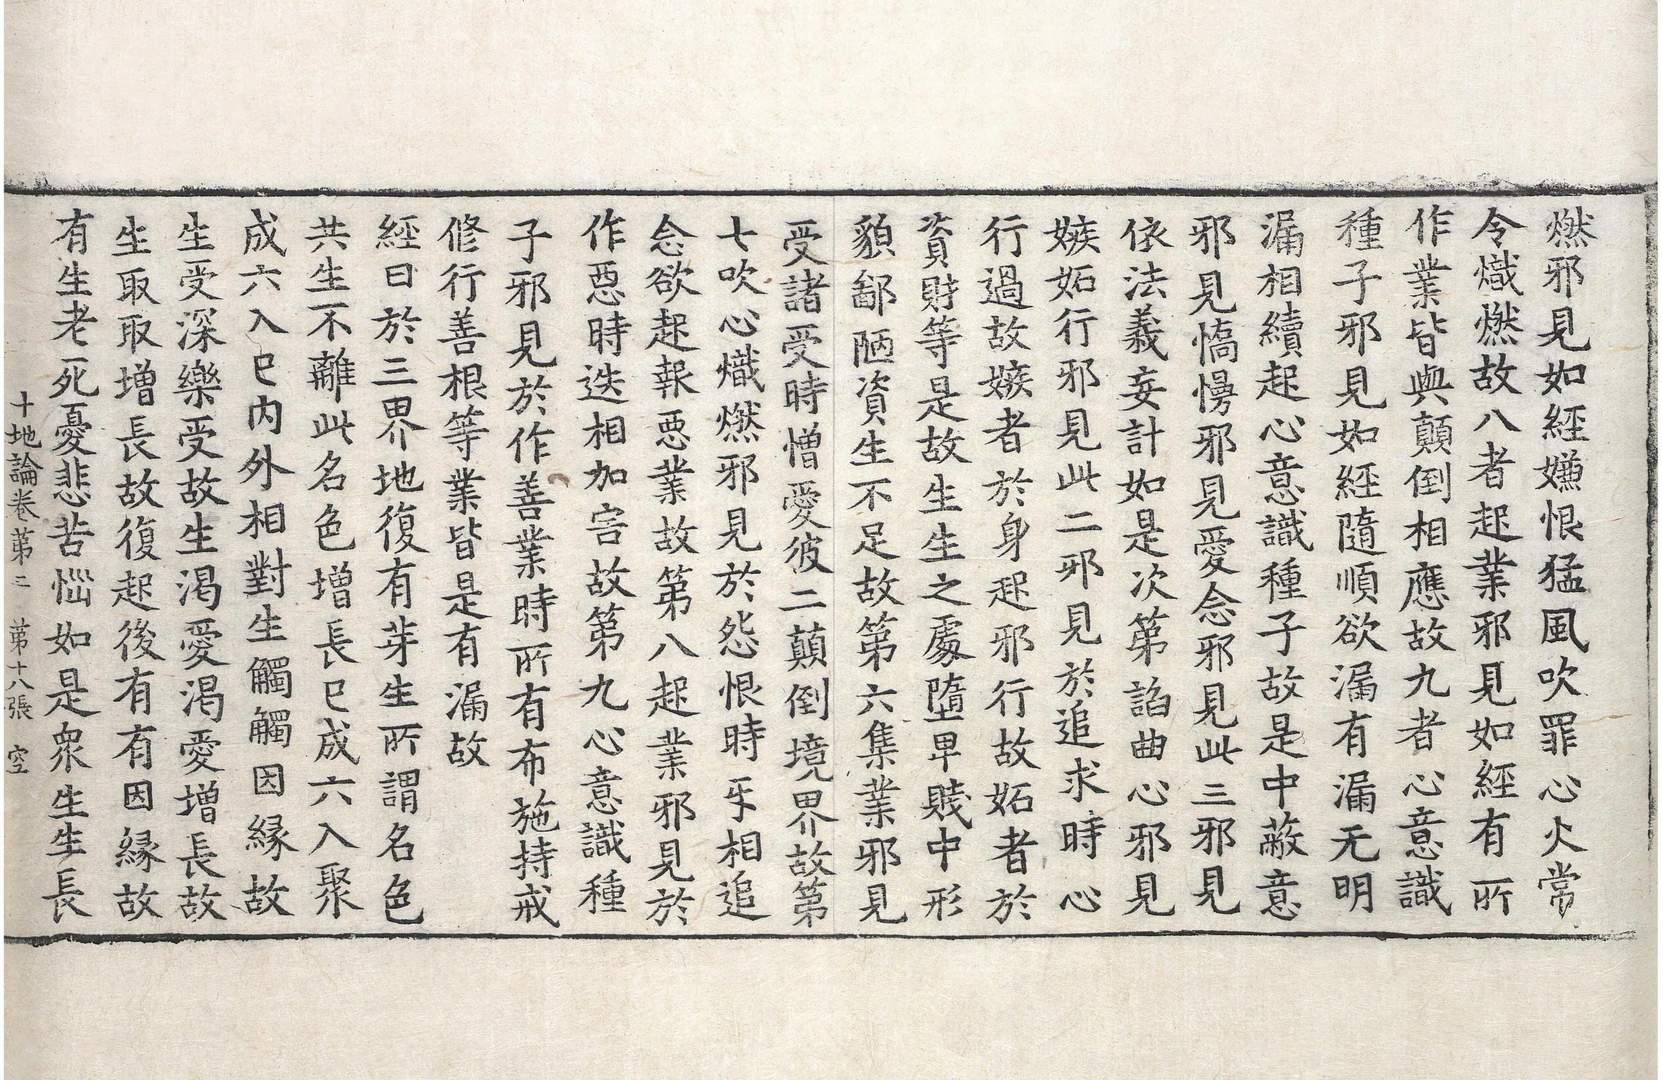 燃邪見如經嫌恨猛風吹罪心火常
令熾燃故八者起業邪見如經有所
作業皆與顛倒相應故九者心意識
種子邪見如經隨順欲漏有漏无明
漏相續起心意識種子故是中蔽意
邪見憍慢邪見愛念邪見此三邪見
依法義妄計如是次第諂曲心邪見
嫉妬行邪見此二邪見於追求時心
行過故嫉者於身起邪行故妬者於
資財等是故生生之處墮卑賤中形
貌鄙陋資生不足故第六集業邪見
受諸受時憎愛彼二顛倒境界故第
七吹心熾燃邪見於怨恨時乎相追
念欲起報惡業故第八起業邪見於
作惡時迭相加害故第九心意識種
子邪見於作善業時所有布施持戒
修行善根等業皆是有漏故
經曰於三界地復有芽生所謂名色
共生不離此名色增長已成六入聚
成六入已內外相對生觸觸因緣故
生受深樂受故生渴愛渴愛增長故
生取取增長故復起後有有因緣故
有生老死憂悲苦惱如是衆生生長
十地論卷第二　第十八張　空